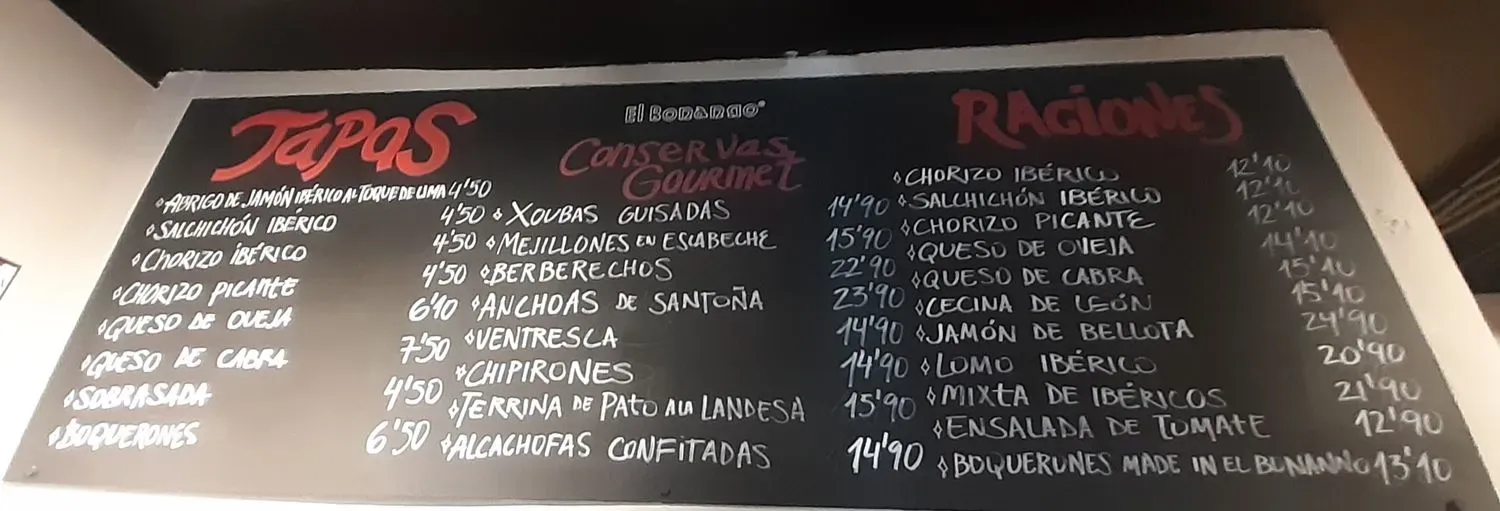 TAPAS
ABRIGO DE JAMÓN IBÉRICO AL TOQUE DE LIMA 4'50
SALCHICHÓN IBÉRICO 4'50
CHORIZO IBÉRICO 4'50
CHORIZO PICANTE 4'50
QUESO DE OVEJA 6'10
QUESO DE CABRA 7'50
SOBRASADA 4'50
BOQUERONES 6'50
El Bonanno
Conservas
Gourmet
XOUBAS GUISADAS 14'90
MEJILLONES EN ESCABECHE 15'90
BERBERECHOS 22'90
ANCHOAS DE SANTOÑA 23'90
VENTRESCA 14'90
CHIPIRONES 14'90
TERRINA DE PATO A LA LANDESA 15'90
ALCACHOFAS CONFITADAS 14'90
RACIONES
CHORIZO IBÉRICO 12'10
SALCHICHÓN IBÉRICO 12'10
CHORIZO PICANTE 12'10
QUESO DE OVEJA 14'10
QUESO DE CABRA 15'10
CECINA DE LEÓN 15'10
JAMÓN DE BELLOTA 24'90
LOMO IBÉRICO 20'90
MIXTA DE IBÉRICOS 21'90
ENSALADA DE TOMATE 12'90
BOQUERONES MADE IN EL BONANNO 13'10